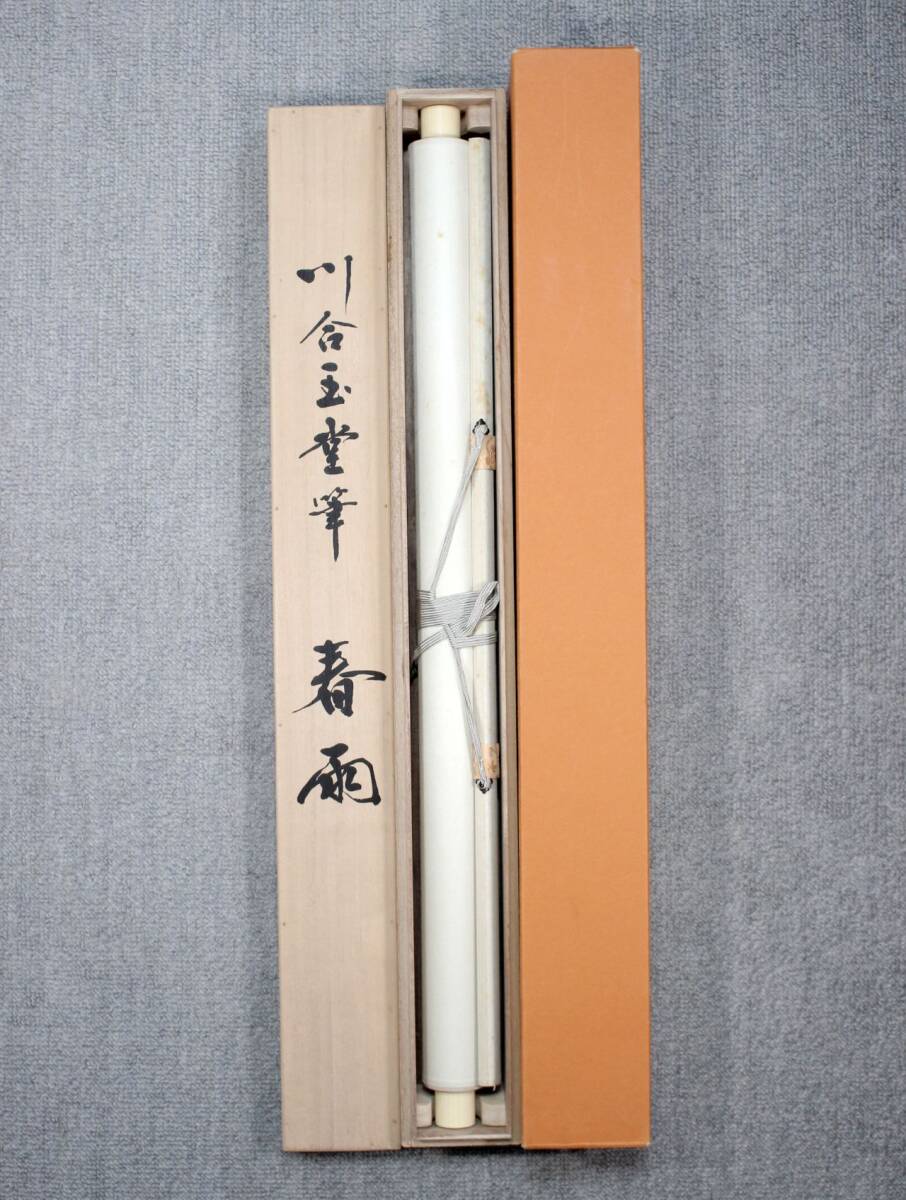 川合玉堂筆 春雨